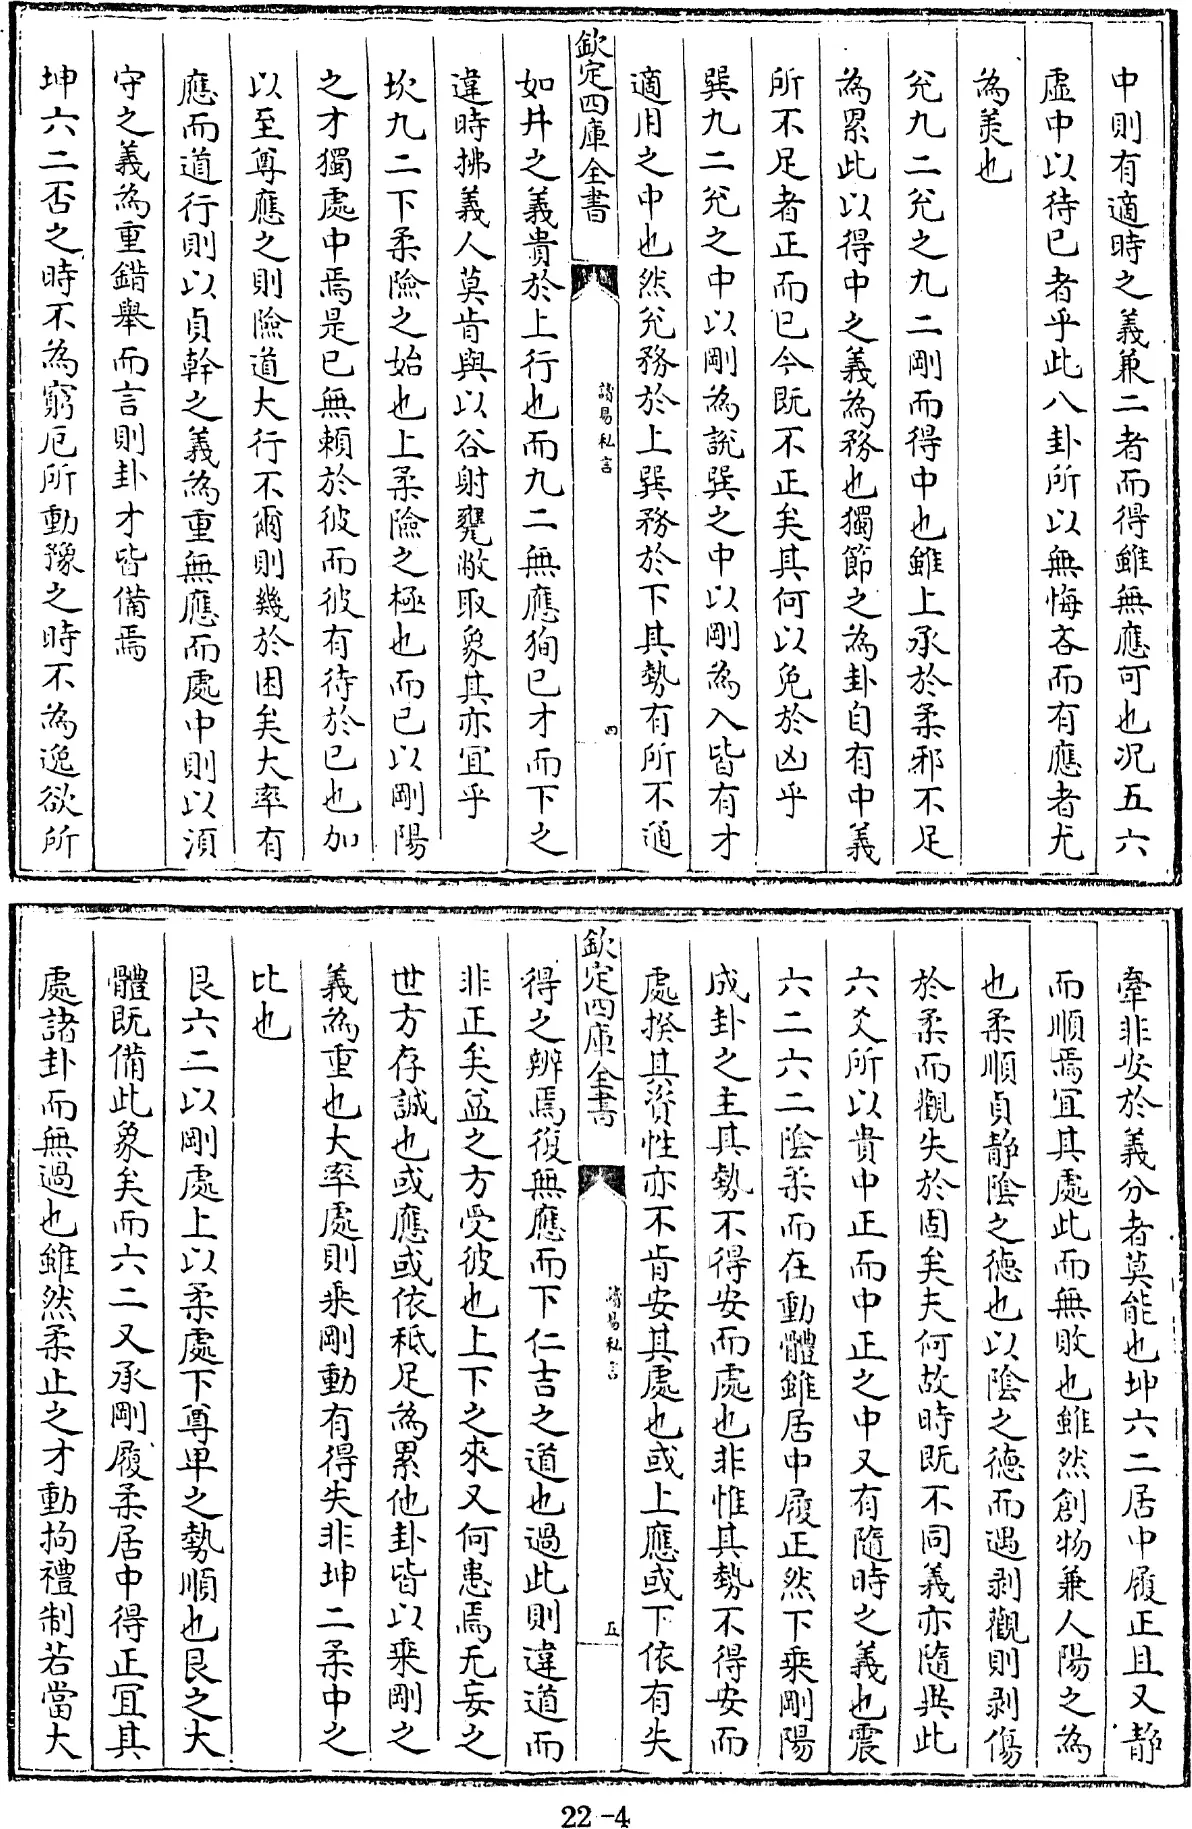 中則有適時之義兼二者而得雖無應可也况五六
虛中以待已者乎此八卦所以無悔吝而有應者尤
為美也
兊九二兊之九二剛而得中也雖上承於柔邪不足
為累此以得中之義為務也獨節之為卦自有中義
所不足者正而已今既不正矣其何以免於凶乎
巽九二兊之中以剛為説巽之中以剛為入皆有才
適用之中也然兊務於上巽務於下其勢有所不通
欽定四庫全書
讀易私言
四
如井之義貴於上行也而九二無應狥已才而下之
違時拂義人莫肯與以谷射甕敝取象其亦宜乎
坎九二下柔險之始也上柔險之極也而已以剛陽
之才獨處中焉是已無賴於彼而彼有待於已也加
以至尊應之則險道大行不爾則幾於困矣大率有
應而道行則以貞幹之義為重無應而處中則以湏
守之義為重錯舉而言則卦才皆備焉
坤六二否之時不為窮厄所動豫之時不為逸欲所
牽非安於義分者莫能也坤六二居中履正且又静
而順焉宜其處此而無敗也雖然創物兼人陽之為
也柔順貞静陰之德也以陰之德而遇剥觀則剥傷
於柔而觀失於固矣夫何故時既不同義亦隨異此
六爻所以貴中正而中正之中又有隨時之義也震
六二六二陰柔而在動體雖居中履正然下乘剛陽
成卦之主其勢不得安而處也非惟其勢不得安而
處揆其資性亦不肯安其處也或上應或下依有失
欽定四庫全書
讀易私言
五
得之辨焉復無應而下仁吉之道也過此則違道而
非正矣益之方受彼也上下之來又何患焉无妄之
世方存誠也或應或依秪足為累他卦皆以乘剛之
義為重也大率處則乘剛動有得失非坤二柔中之
比也
艮六二以剛處上以柔處下尊卑之勢順也艮之大
體既備此象矣而六二又承剛履柔居中得正宜其
處諸卦而無過也雖然柔止之才動拘禮制若當大
22-4